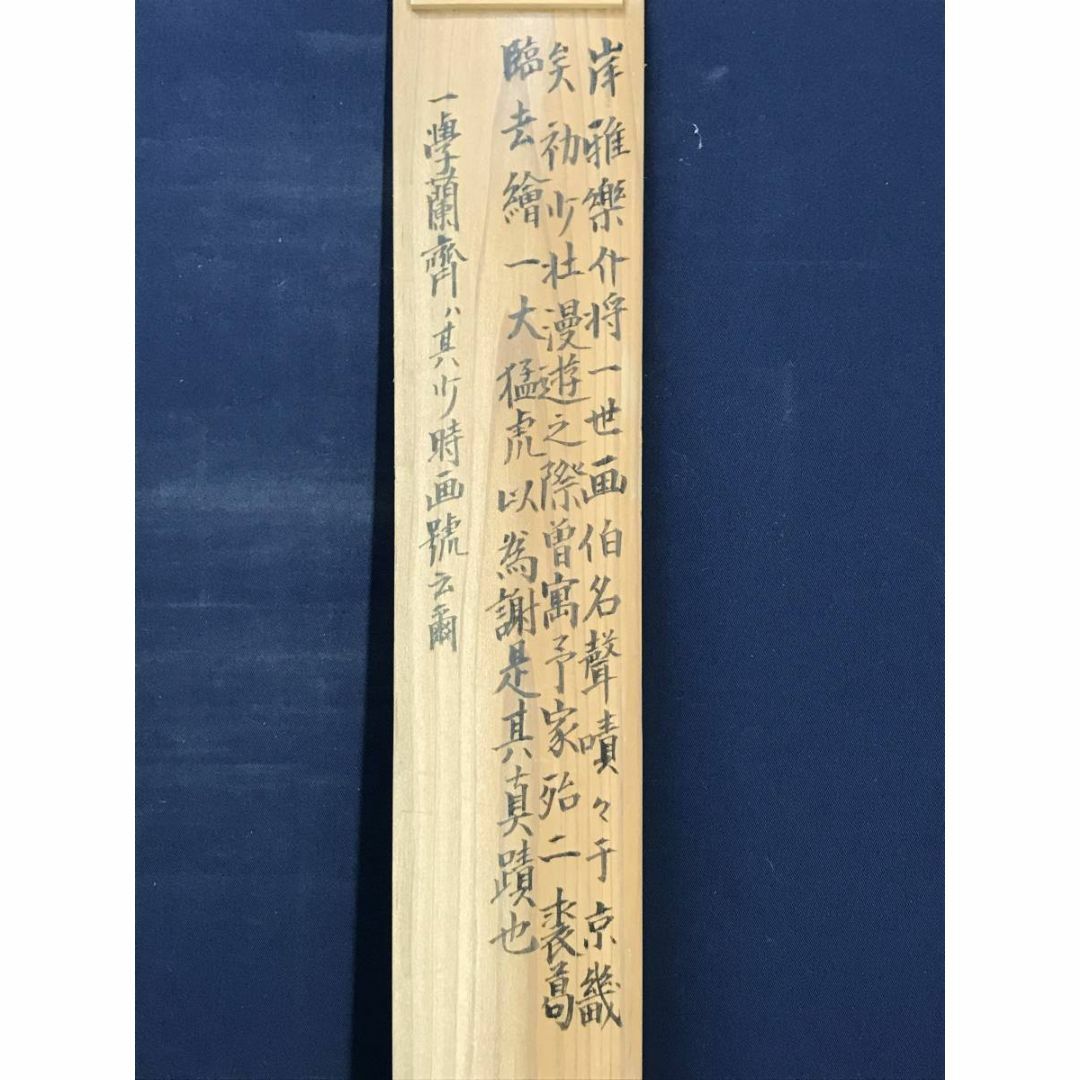 岸雅樂介将一世画伯名聲嘖々于京畿
矣初少壮漫遊之際曽寓予家殆二裘葛
臨去繪一大猛虎以為謝是其真蹟也
一學蘭齊ハ其少時画號云爾